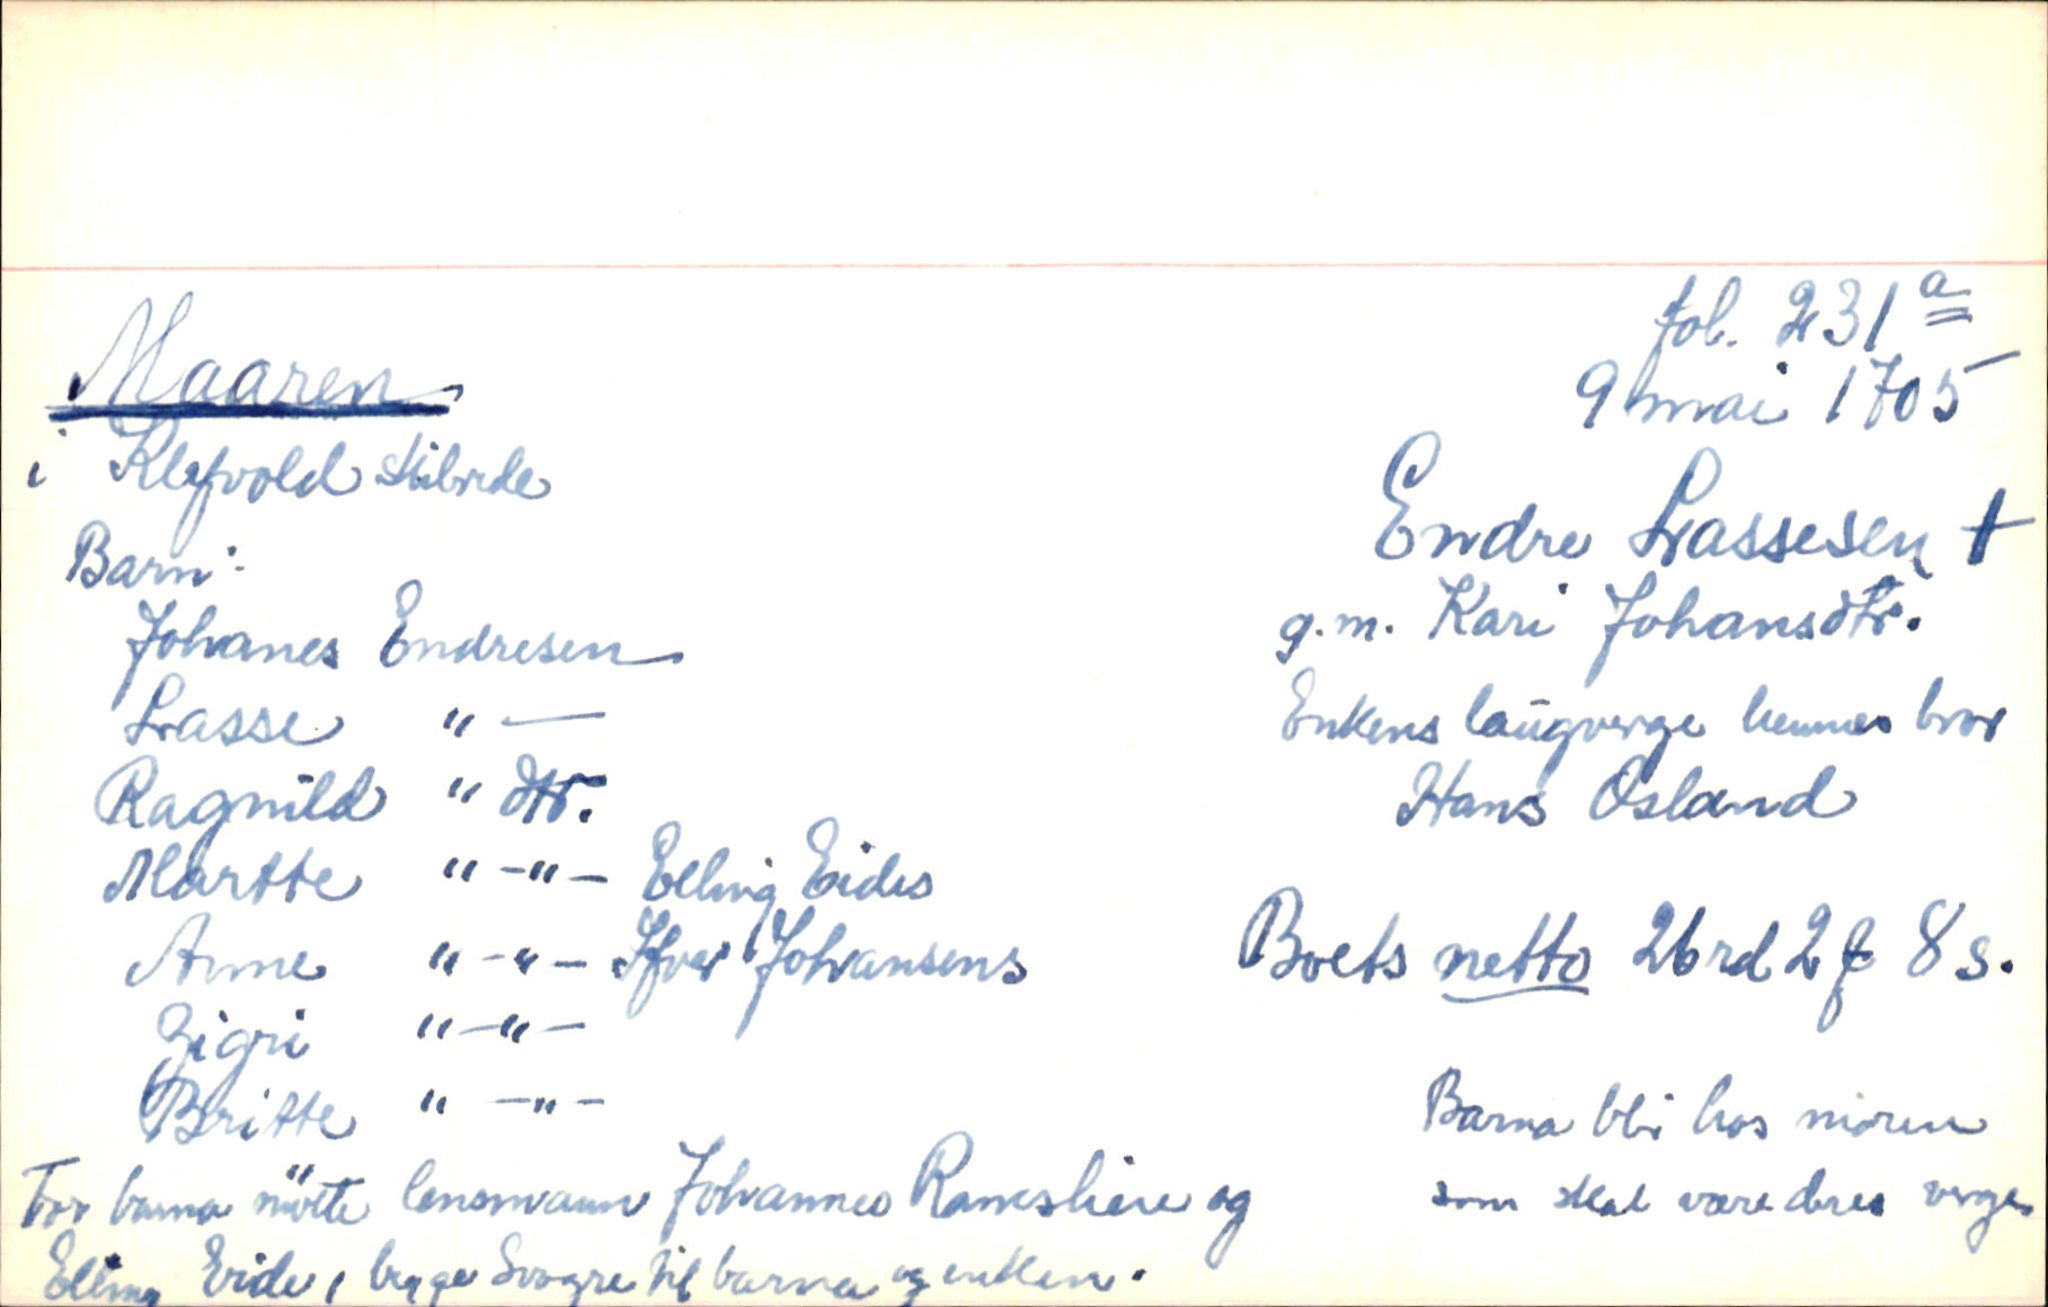 Maaren
i Klefvold skibrede
Barn:
Johanes Endresen
Lasse " —
Ragnild " dtr.
Martte " - " - Elling Eides
Anne " - " - Ifver Johansens
Zigri " - " -
Britte " - " -
For barna mötte lensmann Johannes og
Elling Eide, begge Svogre til barna og enken.
fol. 231 a
9 mai 1705
Endre Lassesen †
g.m. Kari Johansdtr.
Enkens laugverge hennes bror
Hans Osland
Boets netto 26 rd 2 8 s.
Barna bli hos moren
som skal være deres verge